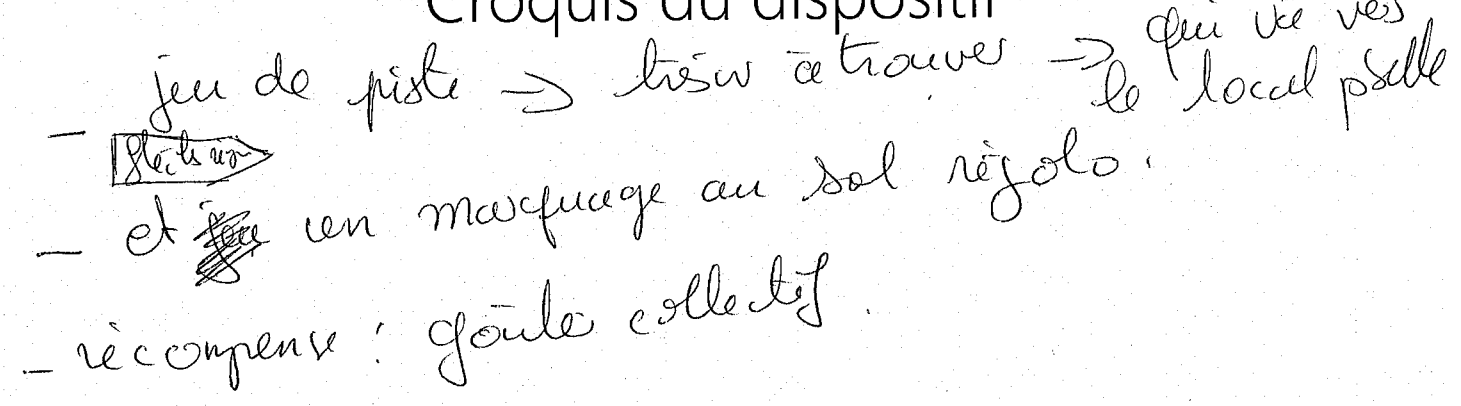 Croquis du dispositif
- jeu de piste → trésor à trouver → qui va vers
le local pselle
- et un marquage au sol rigolo.
- récompense : goûter collectif.